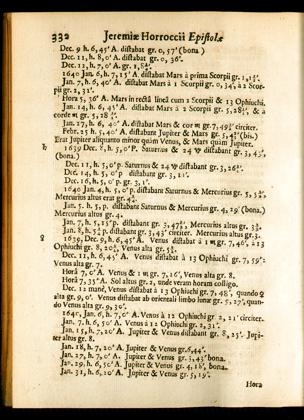 332 Jeremiæ Horroccii Epistolæ
Dec. 9 h. 6, 45' A. distabat gr. 0, 57' (bona.)
Dec. 11, h. 8, 0' A. distabat gr. 0, 36'.
Dec. 12, h. 7, 0' A. gr. 1,
1640 Jan. 6 h. 7, 15' A. distabat Mars à prima Scorpii gr. 1,
Jan. 7, h. 6, 40' A. distabat Mars à 1 Scorpii gr. 0, 34', à 2 Scor-
pii gr. 2, 31'.
Hora 5, 36' A. Mars in rectâ lineâ cum 1 Scorpii & 13 Ophiuchi.
Jan. 14, h. 6, 45' A. distabat Mars à 2 Scorpii gr. 5, & à
corde ♏ gr. 5, 28
Jan. 27, h. 6, 40' A. distabant Mars & cor ♏ gr. 7, circiter.
Febr. 25 h. 5, 40' A. distabant Jupiter & Mars gr. 5, (bis.)
Erat Jupiter aliquanto minor quàm Venus, & Mars quàm Jupiter.
♄ 1639 Dec. 8, h. 5, 0' P. Saturnus & 24 distabant gr. 3, 43',
(bona.)
Dec. 11, h. 5, 0' p. Saturnus & 24 distabant gr. 3,
Dec. 14, h. 5, 0' p distabant gr. 3, 11'.
Dec. 16, h. 5, 0' p. gr. 3, 1'.
1640 Jan. 4, h. 5, 0' p. distabant Saturnus & Mercurius gr. 5,
Mercurius altus erat gr.
Jan. 5, h. 5, p. distabant Saturnus & Mercurius gr. 4, 29' (bona.)
Mercurius altus gr. 4.
Jan. 7, h. 5, 15' p. distabant gr. 3, Mercurius altus gr. 3
Jan. 8, h. 5 p. distabant gr. 3, 43' circiter. Mercurius altus gr. 3.
♀ 1639, Dec. 9, h. 6, 45' A. Venus distabat à 1 ♏ gr. 7, 46', à 13
Ophiuchi gr. 8, Venus alta gr.
Dec. 11, h. 6, 45' A. Venus distabat à 13 Ophiuchi gr. 7, 59':
Venus alta gr. 7.
Horâ 7, 0' A. Venus & 1 ♏ gr. 7, 16', Venus alta gr. 8.
Horâ 7, 33' A. Sol altus gr. 2, unde veram horam colligo.
Dec. 12 manè, Venus distabat à 13 Ophiuchi gr. 7, 48', quando ♀
alta gr. 9, 0'. Venus distabat ab orientali limbo lunæ gr. 5, 27', quan-
do Venus alta gr. 9, 30'.
1640, Jan. 6, h. 7, 0' A. Venus à 12 Ophiuchi gr. 2, 21' circiter.
Jan. 7, h. 6, 50' A. Venus à 12 Ophiuchi gr. 2, 31'.
Jan. 15, h. 7, 20' A. Jupiter & Venus distabant gr. 8, 25'. Jupi-
ter altus gr. 8.
Jan. 18, h. 7, 20' A. Jupiter & Venus gr. 6, 44'.
Jan. 27, h. 7, 0' A. Jupiter & Venus gr. 3, 43' bona.
Jan. 29, h. 6, 50' A. Jupiter & Venus gr. 4, 18', bona.
Jan. 31, h. 6, 20' A. Jupiter & Venus gr. 5, 19'.
Hora